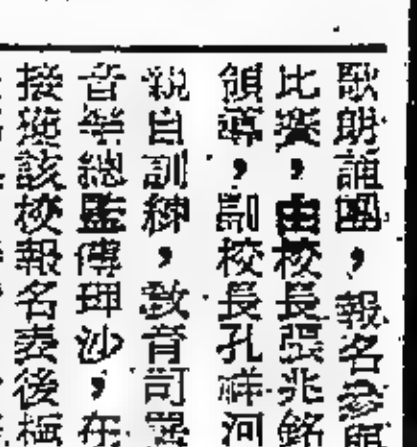 歌朗誦團，報名參與
比賽，由校長張兆銘
領導，副校長孔祥河
親自訓練，教育司署
音樂總監傅理沙，在
接獲該校報名表後極